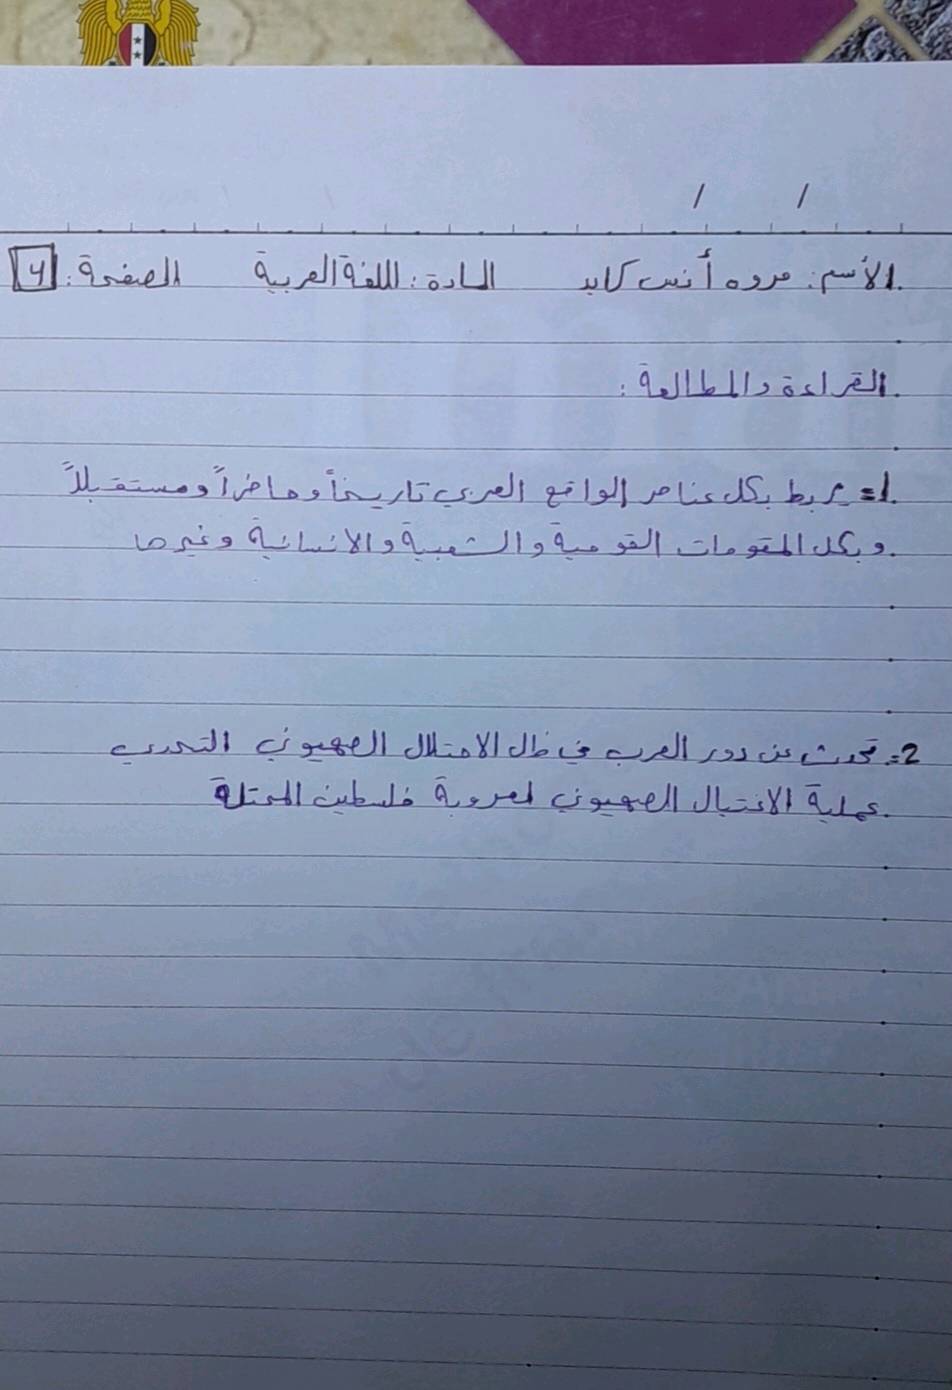 / /
الأسم: مروه أنس كايد المادة: اللغة العربية الصفحة: 4
القراءة والمطالعة:
1= يربط بكل عناصر الواقع العربي تاريخاً وحاضراً ومستقبلاً
وبكل المقومات القومية والشعبية والانسانية وغيرها
2= تحدث عن دور العرب في ظل الاحتلال الصهيوني التحدي
عملية الاغتيال الصهيوني لعروبة فلسطين المحتلة